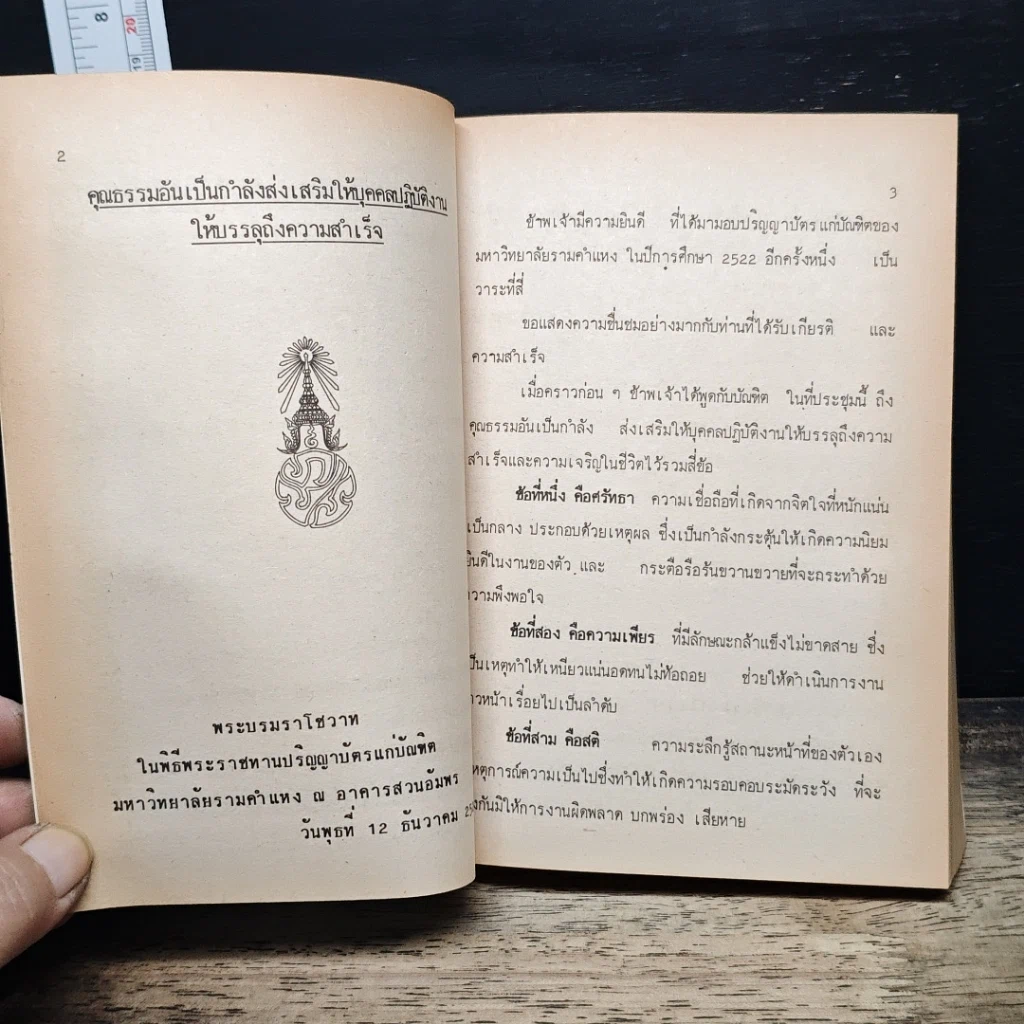 8
20
19
2
คุณธรรมอันเป็นกำลังส่งเสริมให้บุคคลปฏิบัติงาน
ให้บรรลุถึงความสำเร็จ
พระบรมราโชวาท
ในพิธีพระราชทานปริญญาบัตรแก่บัณฑิต
มหาวิทยาลัยรามคำแหง ณ อาคารสวนอัมพร
วันพุธที่ 12 ธันวาคม
3
ข้าพเจ้ามีความยินดี ที่ได้มามอบปริญญาบัตรแก่บัณฑิตของ
มหาวิทยาลัยรามคำแหง ในปีการศึกษา 2522 อีกครั้งหนึ่ง เป็น
วาระที่สี่
ขอแสดงความชื่นชมอย่างมากกับท่านที่ได้รับเกียรติ และ
ความสำเร็จ
เมื่อคราวก่อน ๆ ข้าพเจ้าได้พูดกับบัณฑิต ในที่ประชุมนี้ ถึง
คุณธรรมอันเป็นกำลัง ส่งเสริมให้บุคคลปฏิบัติงานให้บรรลุถึงความ
สำเร็จและความเจริญในชีวิตไว้รวมสี่ข้อ
ข้อที่หนึ่ง คือศรัทธา ความเชื่อถือที่เกิดจากจิตใจที่หนักแน่น
เป็นกลาง ประกอบด้วยเหตุผล ซึ่งเป็นกำลังกระตุ้นให้เกิดความนิยม
ยินดีในงานของตัว และ กระตือรือร้นขวานขวายที่จะกระทำด้วย
ความพึงพอใจ
ข้อที่สอง คือความเพียร ที่มีลักษณะกล้าแข็งไม่ขาดสาย ซึ่ง
เป็นเหตุทำให้เหนียวแน่นอดทนไม่ท้อถอย ช่วยให้ดำเนินการงาน
ก้าวหน้าเรื่อยไปเป็นลำดับ
ข้อที่สาม คือสติ ความระลึกรู้สถานะหน้าที่ของตัวเอง
เหตุการณ์ความเป็นไปซึ่งทำให้เกิดความรอบคอบระมัดระวัง ที่จะ
ป้องกันมิให้การงานผิดพลาด บกพร่อง เสียหาย